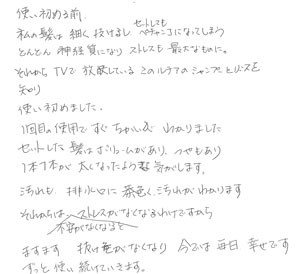 使い初める前、
私の髪は細く抜けるし セットしても ペチャンコになってしまう
どんどん神経質になり ストレスも最大なものに。
それから TVで放映している このルチアのシャンプーとリンスを
知り
使い初めました。
1回目の使用ですぐちがいがわかりました
セットした髪はボリュームがあり、つやもあり
1本1本が太くなったような気がします。
汚れも 排水口に茶色く汚れがわかります
それからは ストレスがなくなるわけですから
不安がなくなると
ますます 抜け毛がなくなり 今では毎日幸せです
ずっと使い続けていきます。